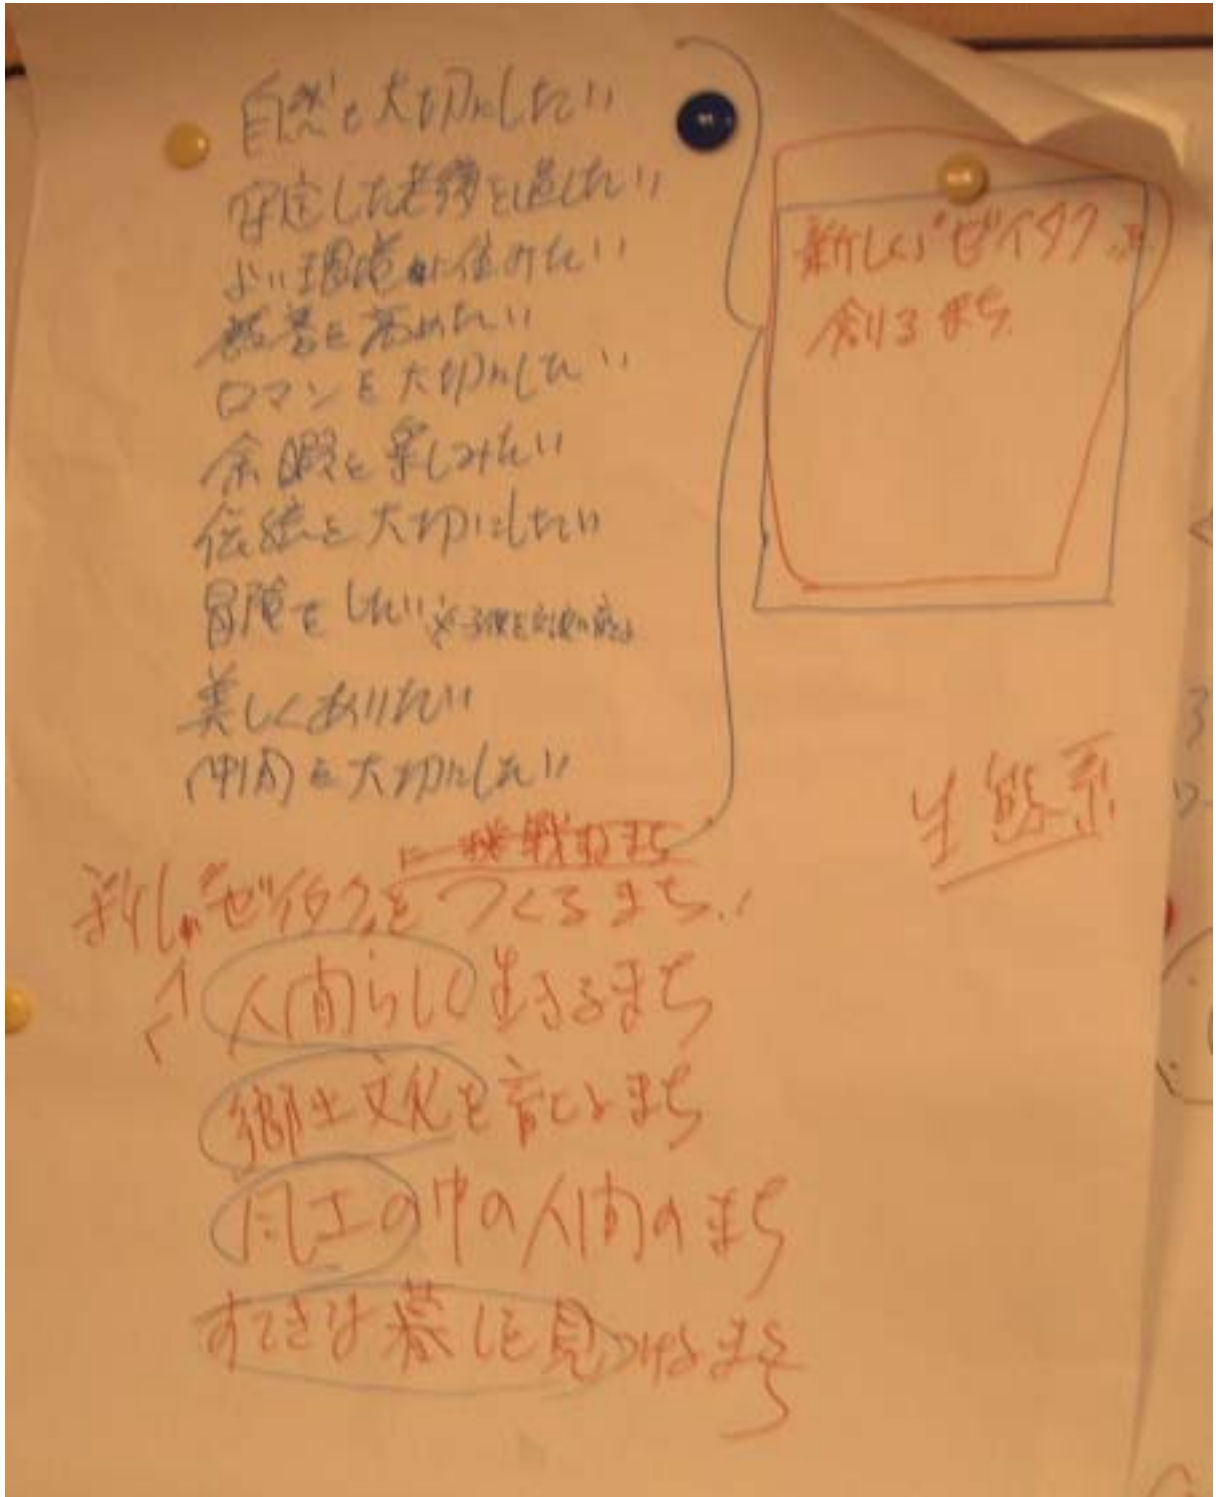 自然を大切にしたい
安定した老後を過したい
よい環境に住みたい
教養を高めたい
ロマンを大切にしたい
余暇を楽しみたい
伝統を大切にしたい
冒険をしたい
美しくありたい
仲間を大切にしたい
新しい“ゼイタク”を
創るまち
生態系
に挑戦するまち
新しい“ゼイタク”をつくるまち
人間らしく生きるまち
郷土文化を育てるまち
風土の中の人間のまち
すてきな暮しを見つけるまち